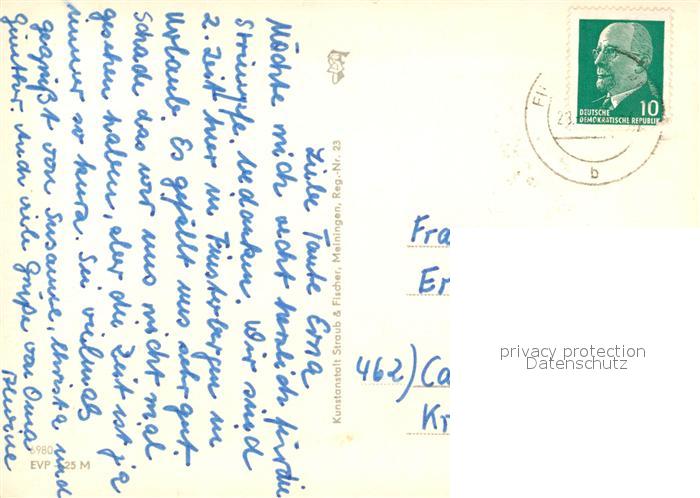 Liebe Tante Erna
Möchte mich recht herzlich für die
Strümpfe bedanken. Wir sind
z. Zeit hier in Finsterbergen in
Urlaub. Es gefällt uns sehr gut.
Schade das wir uns nicht mal
gesehen haben, aber die Zeit ist ja
immer so kurz. Sei vielmals
gegrüßt von Susanne, Christa und
Günther. Auch viele Grüße von Oma
Kunstanstalt Straub & Fischer, Meiningen, Reg.-Nr. 23
6980
EVP -25 M
10
DEUTSCHE
DEMOKRATISCHE REPUBLIK
FI
23.
b
Fra
Er
462) Ca
Kr
privacy protection
Datenschutz